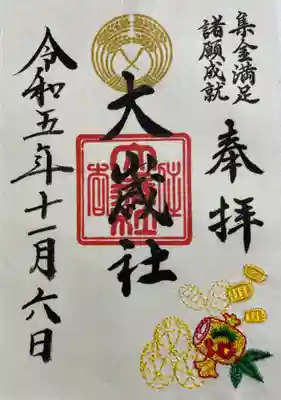 集金満足
諸願成就
奉拝
大歳社
令和五年十一月六日